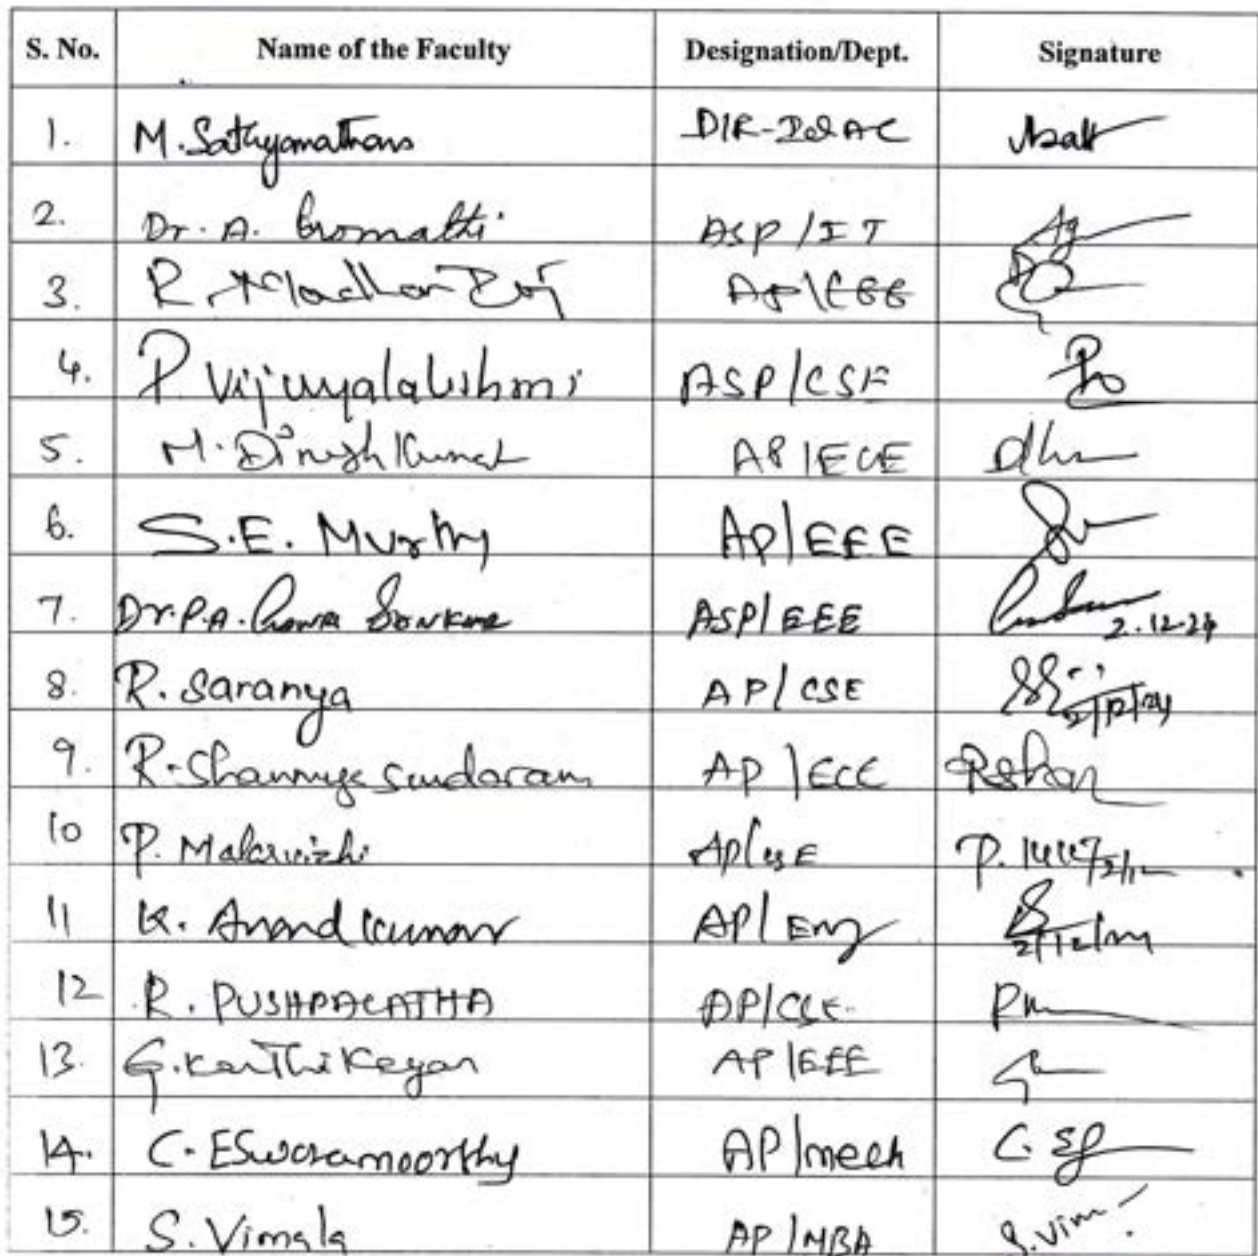 S. No. Name of the Faculty Designation/Dept. Signature
1. M. Sathyamathans DIR-
2. Dr. A. ASP/IT
3. R. Madhan Raj AP\EEE
4. P. Vijuyalalishmi ASP/CSE
5. M. Dinesh Kumar AP/ECE
6. S.E. Murthy AP/EEE
7. Dr. P.A. ASP/EEE 2.12.24
8. R. Saranya AP/CSE 2/12/24
9. R. Shanmuga Sundaram AP/ECE
10 P. Malarvizhi AP/CSE P. 2/12
11 K. Anand kumar AP/Eng 2/12/24
12 R. PUSHPALATHA AP/CSE
13. G. Karthikeyan AP/EEE
14. C. Eswaramoorthy AP/mech C.
15. S. Vimala AP/MBA S. Vim